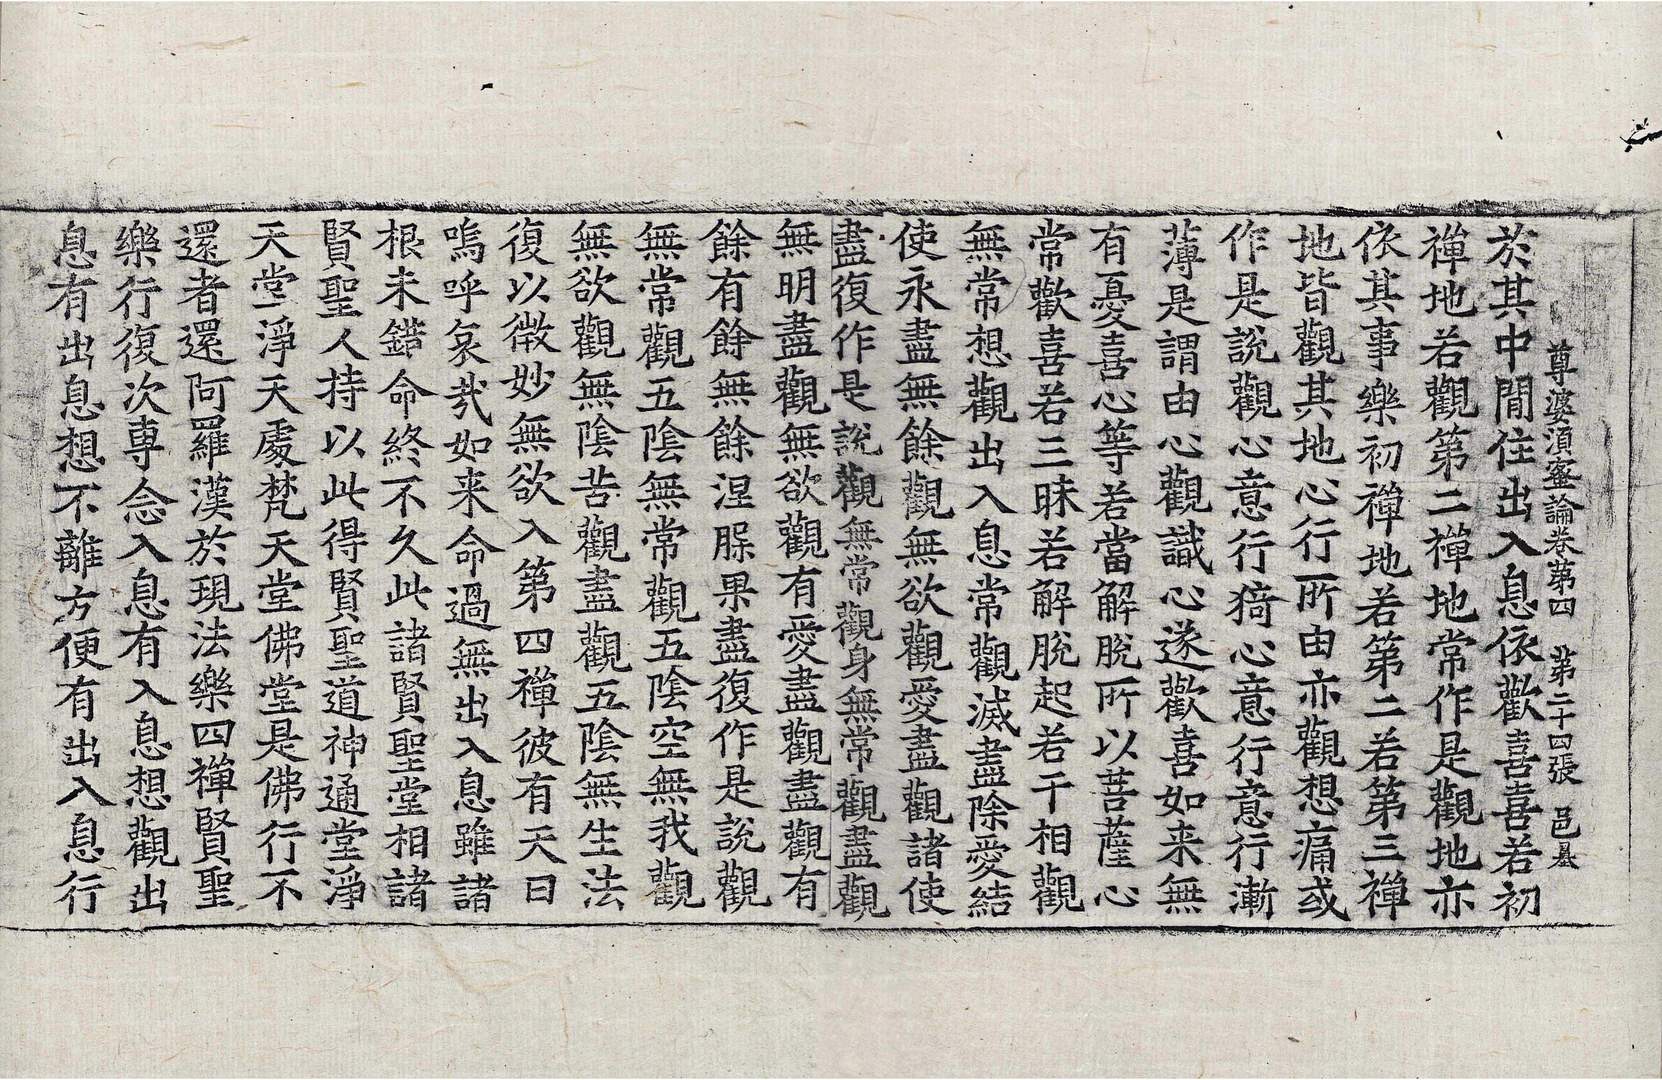 尊婆湏蜜論卷苐四　苐二十四張　邑
於其中閒住出入息依歡喜喜若初
禪地若觀第二禪地常作是觀地亦
依其事樂初禪地若第二若第三禪
地皆觀其地心行所由亦觀想痛或
作是說觀心意行猗心意行意行漸
薄是謂由心觀識心遂歡喜如来無
有憂喜心等若當解脫所以菩薩心
常歡喜若三昧若解脫起若干相觀
無常想觀出入息常觀滅盡除愛結
使永盡無餘觀無欲觀愛盡觀諸使
盡復作是說觀無常觀身無常觀盡觀
無明盡觀無欲觀有愛盡觀盡觀有
餘有餘無餘涅脲果盡復作是說觀
無常觀五陰無常觀五陰空無我觀
無欲觀無陰苦觀盡觀五陰無生法
復以微妙無欲入第四禪彼有天曰
嗚呼哀㦲如来命過無出入息雖諸
根未錯命終不久此諸賢聖堂相諸
賢聖人持以此得賢聖道神通堂淨
天堂淨天處梵天堂佛堂是佛行不
還者還阿羅漢於現法樂四禪賢聖
樂行復次專念入息有入息想觀出
息有出息想不離方便有出入息行